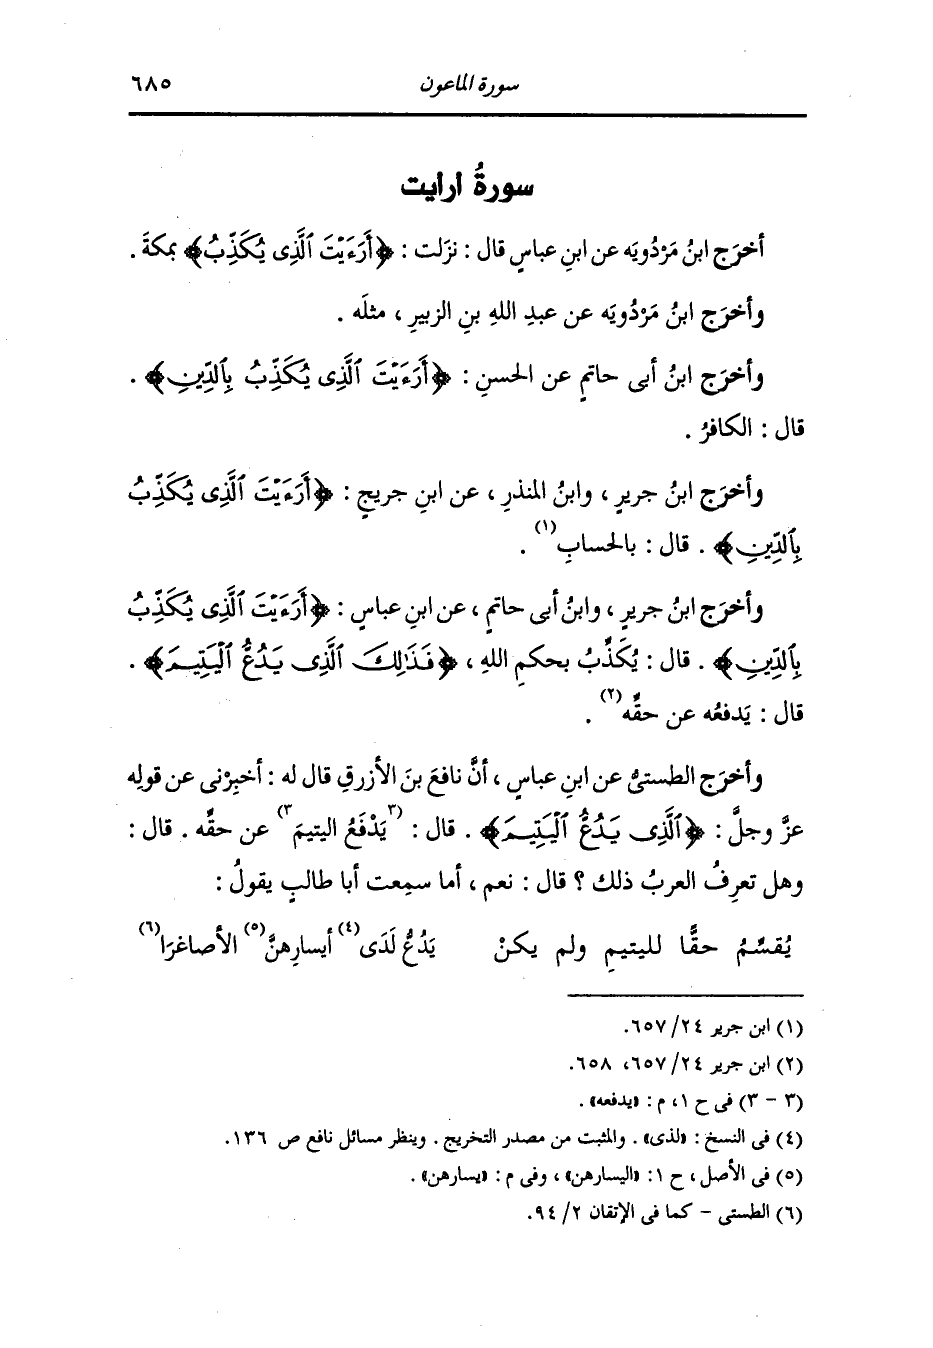 سورة الماعون ٦٨٥
سورةُ ارايت
أخرَج ابنُ مَرْدُويَه عن ابنِ عباسٍ قال : نزَلت : ﴿أَرَءَيْتَ ٱلَّذِى يُكَذِّبُ﴾ بمكةَ .
وأخرَج ابنُ مَرْدُويَه عن عبدِ اللهِ بنِ الزبيرِ ، مثلَه .
وأخرَج ابنُ أبى حاتمٍ عن الحسنِ : ﴿أَرَءَيْتَ ٱلَّذِى يُكَذِّبُ بِٱلدِّينِ﴾ .
قال : الكافرُ .
وأخرَج ابنُ جريرٍ ، وابنُ المنذرِ ، عن ابنِ جريجٍ : ﴿أَرَءَيْتَ ٱلَّذِى يُكَذِّبُ
بِٱلدِّينِ﴾ . قال : بالحسابِ(١) .
وأخرَج ابنُ جريرٍ ، وابنُ أبى حاتمٍ ، عن ابنِ عباسٍ : ﴿أَرَءَيْتَ ٱلَّذِى يُكَذِّبُ
بِٱلدِّينِ﴾ . قال : يُكَذِّبُ بحكمِ اللهِ ، ﴿فَذَٰلِكَ ٱلَّذِى يَدُعُّ ٱلْيَتِيمَ﴾ .
قال : يَدفعُه عن حقِّه(٢) .
وأخرَج الطستىُّ عن ابنِ عباسٍ ، أنَّ نافعَ بنَ الأزرقِ قال له : أخبِرْنى عن قولِه
عزَّ وجلَّ : ﴿ٱلَّذِى يَدُعُّ ٱلْيَتِيمَ﴾ . قال : (٣يَدْفَعُ اليتيمَ٣) عن حقِّه . قال :
وهل تعرِفُ العربُ ذلك ؟ قال : نعم ، أما سمِعت أبا طالبٍ يقولُ :
يُقسِّمُ حقًّا لليتيمِ ولم يكنْ يَدُعُّ لَدَى(٤) أيسارِهنَّ(٥) الأصاغرَا(٦)
(١) ابن جرير ٢٤/ ٦٥٧.
(٢) ابن جرير ٢٤/ ٦٥٧، ٦٥٨.
(٣ - ٣) فى ح ١، م : «يدفعه» .
(٤) فى النسخ : «لذى» . والمثبت من مصدر التخريج . وينظر مسائل نافع ص ١٣٦.
(٥) فى الأصل ، ح ١: «اليسارهن» ، وفى م : «يسارهن» .
(٦) الطستى - كما فى الإتقان ٢/ ٩٤.